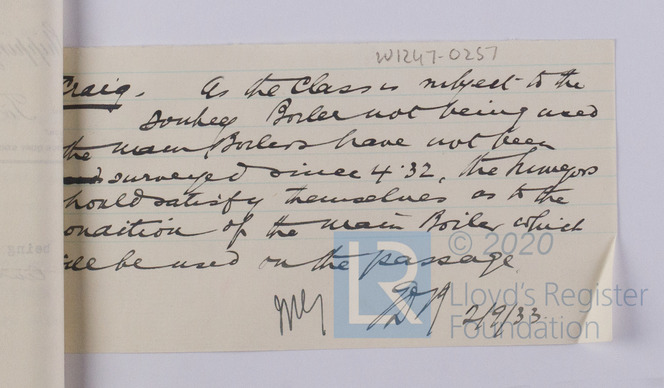 W1247-0257
Craig. As the Class is subject to the
donkey Boiler not being used
the main Boilers have not been
surveyed since 4.32, the surveyors
should satisfy themselves as to the
condition of the main Boiler which
will be used on the passage
2/9/33
LR
© 2020
Lloyd's Register
Foundation